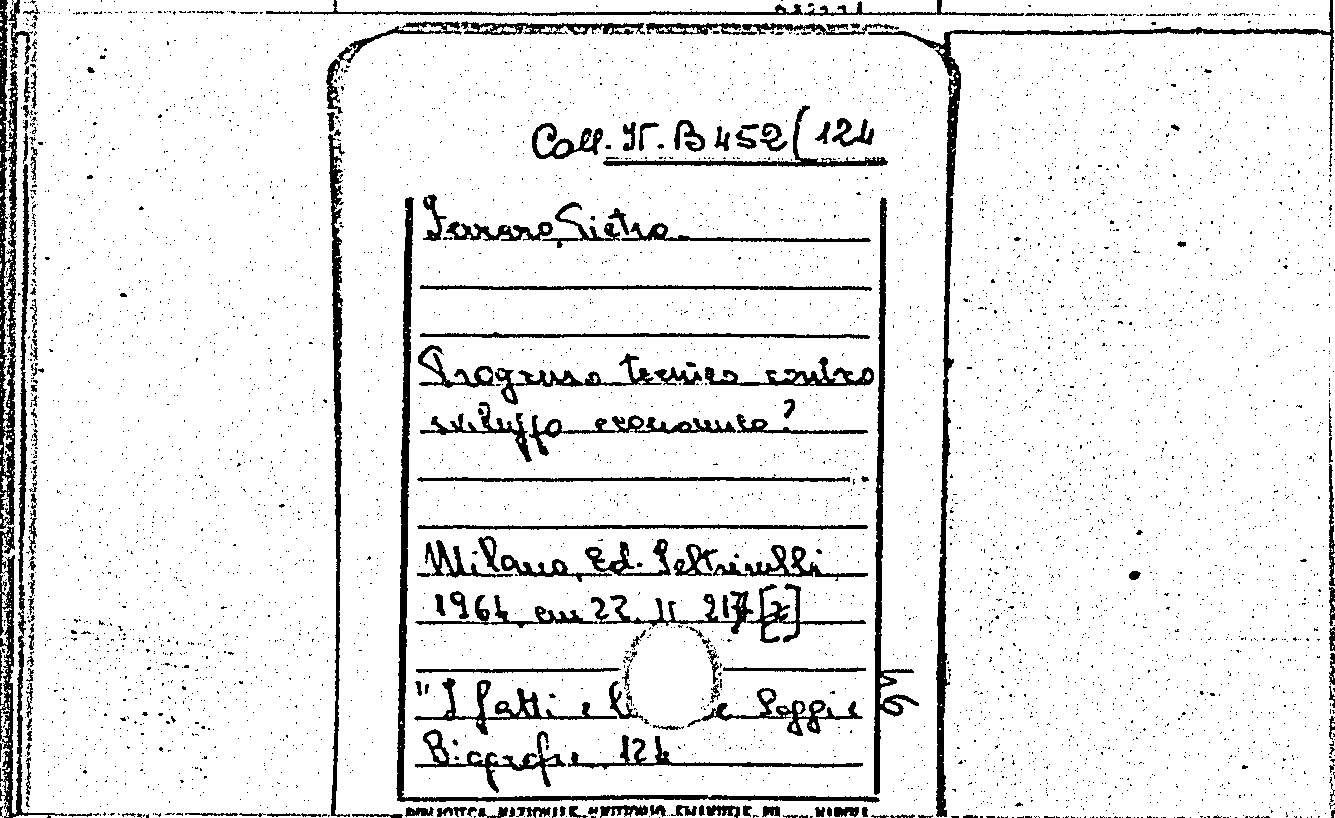 Coll. It. B 452(124
Ferraro, Pietro.
Progresso tecnico contro
sviluppo economico?
Milano, Ed. Feltrinelli
1964 cm 22. pp 217 [2]
"I fatti e le Saggi e
Biografie 124
BIBLIOTECA NAZIONALE VITTORIO EMANUELE III NAPOLI